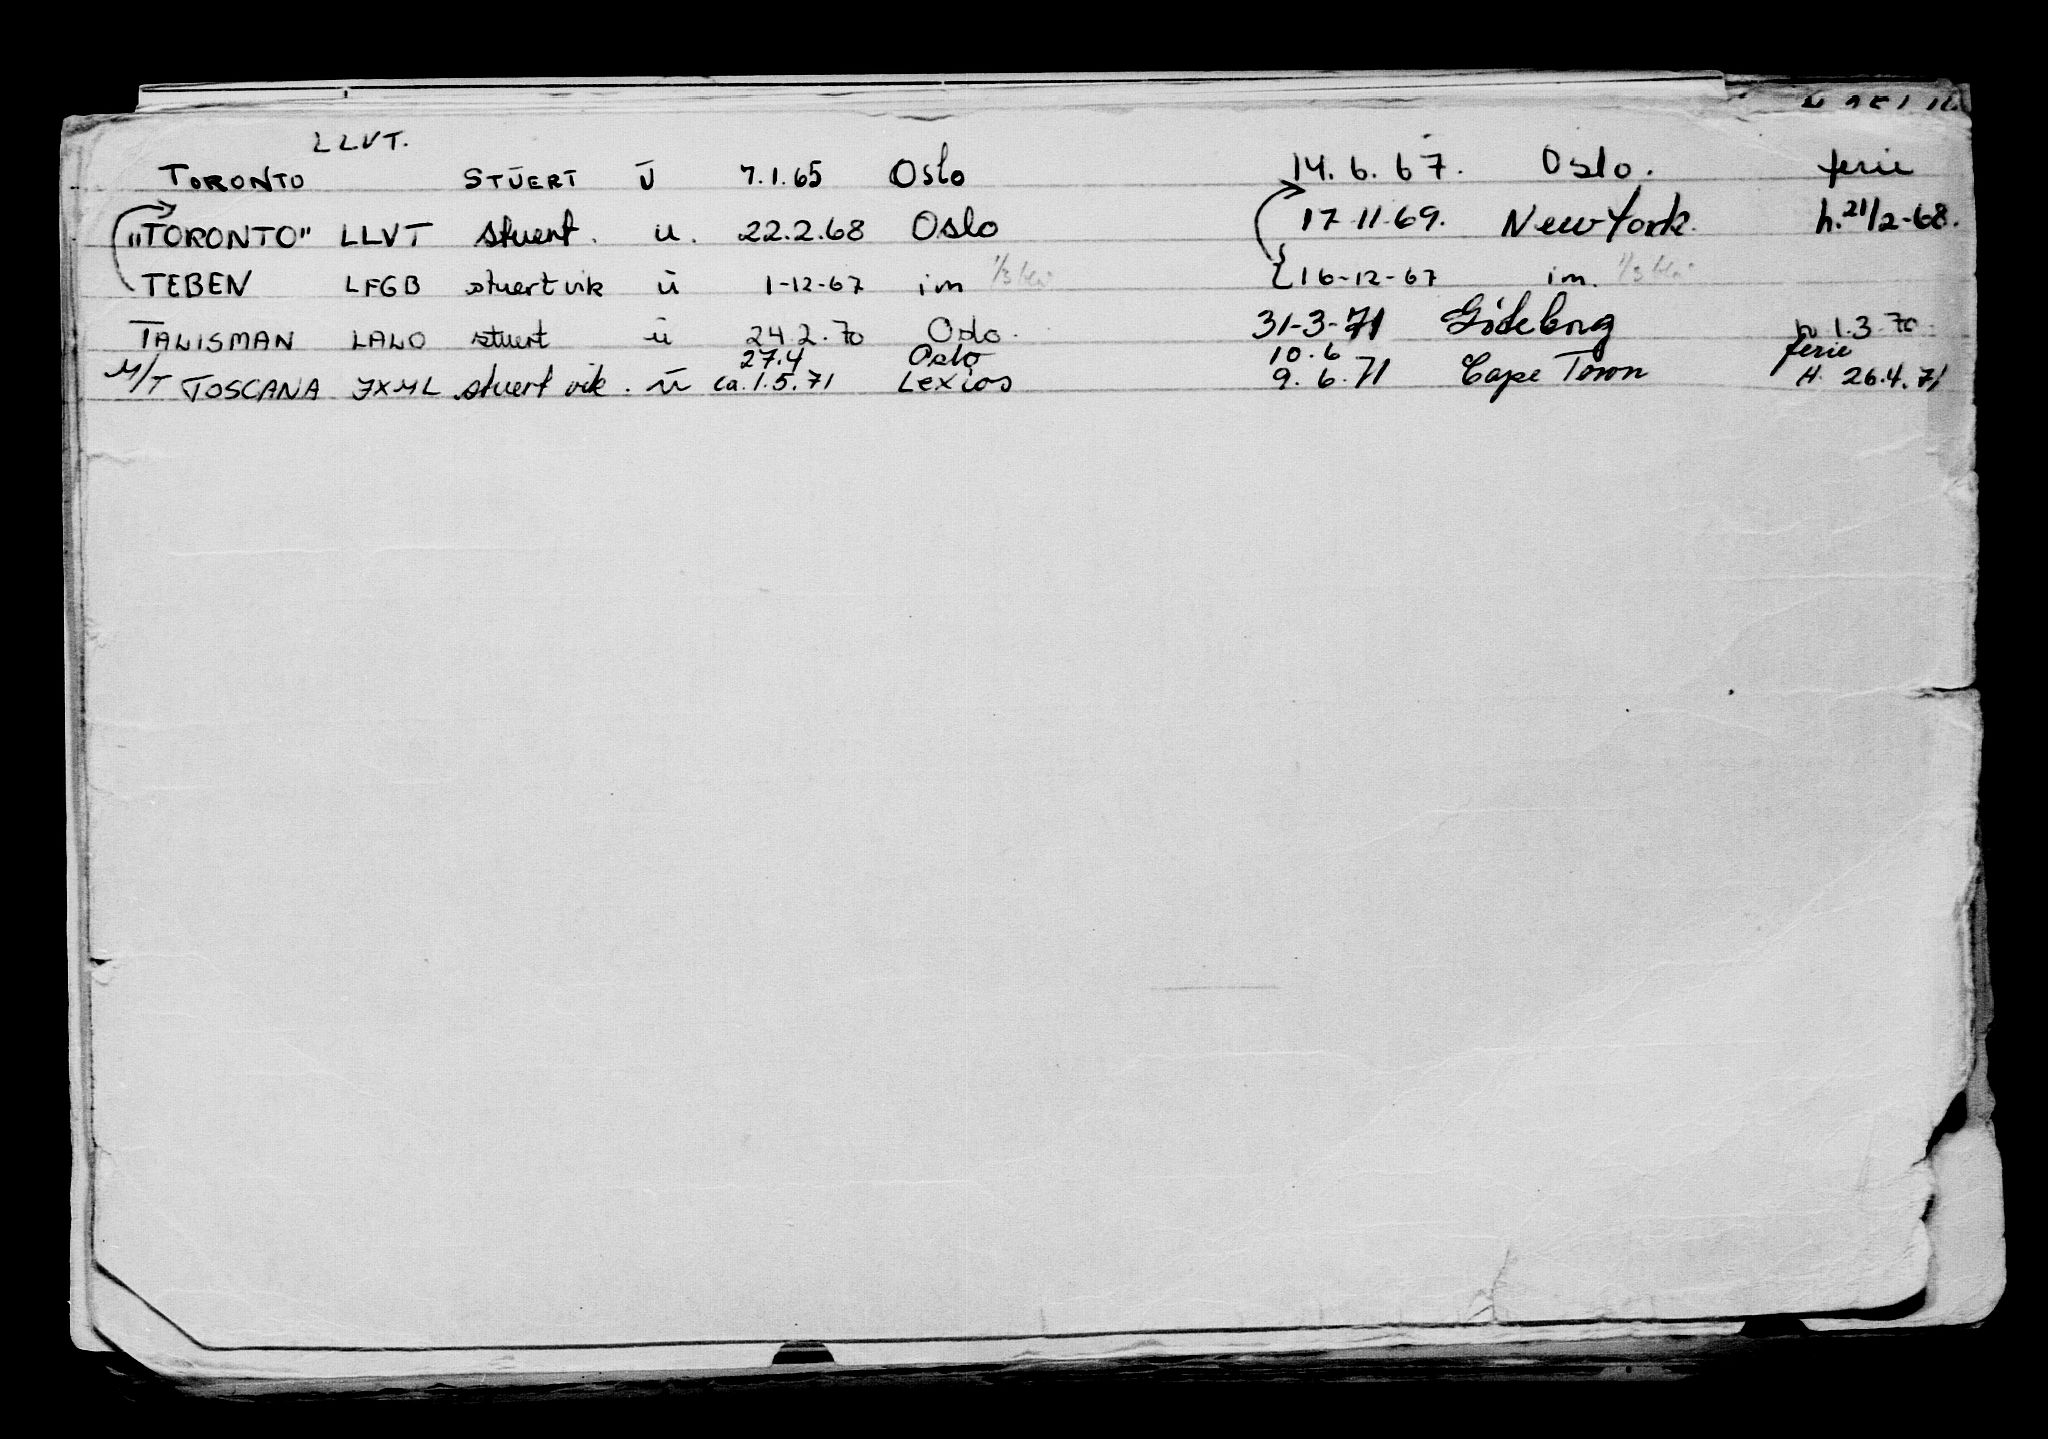 LLVT.
TORONTO STUERT U 7.1.65 Oslo 14.6.67. Oslo. ferie
"TORONTO" LLVT stuert. u. 22.2.68 Oslo 17-11-69. New York. h. 21/2-68.
TEBEN LFGB stuert vik u 1-12-67 im 16-12-67 im.
TALISMAN LALO stuert u 24.2.70 Oslo. 31-3-71 Göteborg h 1.3.70
27.4 Oslo 10.6 ferie
M/T TOSCANA JXML stuert vik. u ca. 1.5.71 Lexios 9.6.71 Cape Town H. 26.4.71